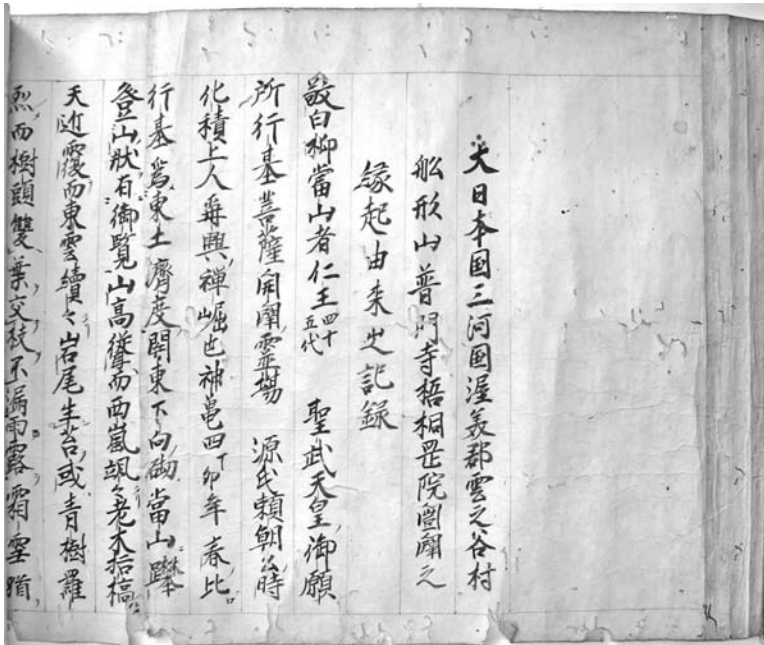 大日本国三河国渥美郡雲之谷村
船形山普門寺梧桐岡院闔闢之
縁起由来之記録
敬白抑當山者仁王四十五代 聖武天皇御願
所行基菩薩開闢霊場 源氏頼朝公時
化積上人再興禅崛也神亀四丁卯年春比
行基為東土濟度関東下向砌當山躋
登山状有御覧山高聳而西嵐颯々老木枯槁
天近覆而東雲續々岩尾生苔或青樹羅
烈而樹頭雙葉交枝不漏雨露霜雪